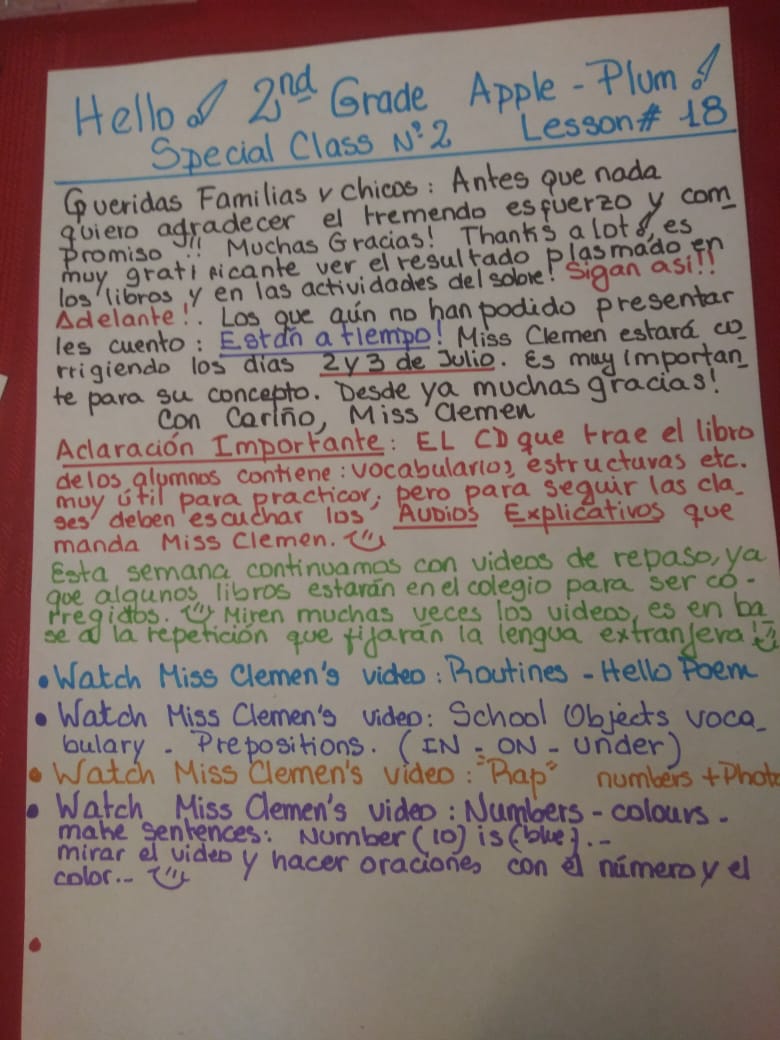 Hello! 2nd Grade Apple - Plum!
Special Class N°2 Lesson # 18
Queridas Familias y Chicos: Antes que nada
quiero agradecer el tremendo esfuerzo y com_
promiso!! Muchas Gracias! Thanks a lot!, es
muy gratificante ver el resultado plasmado en
los libros y en las actividades del sobre! Sigan así!!
Adelante!. Los que aún no han podido presentar
les cuento: Están a tiempo! Miss Clemen estará co_
rrigiendo los días 2 y 3 de Julio. Es muy importan_
te para su concepto. Desde ya muchas gracias!
Con Cariño, Miss Clemen
Aclaración Importante: EL CD que trae el libro
de los alumnos contiene: vocabularios, estructuras etc.
muy útil para practicar, pero para seguir las cla_
ses deben escuchar los AUDIOS Explicativos que
manda Miss Clemen.
Esta semana continuamos con videos de repaso, ya
que algunos libros estarán en el colegio para ser co-
rregidos. Miren muchas veces los videos, es en ba_
se a la repetición que fijarán la lengua extranjera!
• Watch Miss Clemen's video: Routines - Hello Poem
• Watch Miss Clemen's video: School Objects voca_
bulary - Prepositions. (IN - ON - Under)
• Watch Miss Clemen's video: "Rap" numbers + Photo
• Watch Miss Clemen's video: Numbers - colours -
make sentences: Number (10) is (blue). -
mirar el video y hacer oraciones con el número y el
color. -